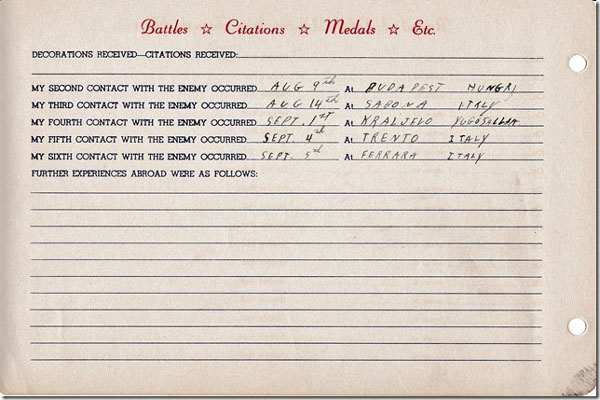 Battles ☆ Citations ☆ Medals ☆ Etc.
DECORATIONS RECEIVED—CITATIONS RECEIVED:
MY SECOND CONTACT WITH THE ENEMY OCCURRED AUG 9th At BUDAPEST HUNGRI
MY THIRD CONTACT WITH THE ENEMY OCCURRED AUG 14th At SAVONA ITALY
MY FOURTH CONTACT WITH THE ENEMY OCCURRED SEPT. 1ST At KRALJEVO
MY FIFTH CONTACT WITH THE ENEMY OCCURRED SEPT. 4th At TRENTO ITALY
MY SIXTH CONTACT WITH THE ENEMY OCCURRED SEPT. 5th At FERRARA ITALY
FURTHER EXPERIENCES ABROAD WERE AS FOLLOWS: